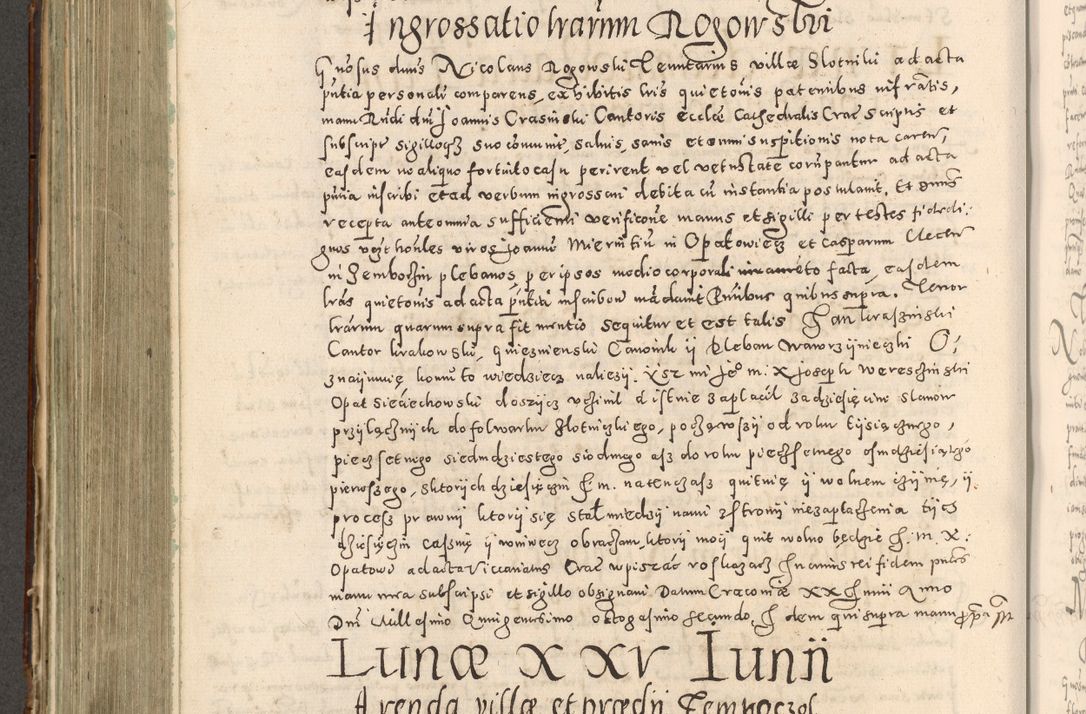 Ingrossatio lrarum Rogowskii
Gnosus dnus Nicolaus Rogowski Tenutarius villæ Slotniki ad acta
pntia personalr comparens, exhibitis lris quietonis patentibus infrascriptis,
manu Rndi dni Joannis Crasinski Cantoris ecclæ Cathedralis Crac scriptis et
subscript sigilloqз suo communit, salvis, sanis et omni suspitionis nota caren,
easdem ne aliquo fortuito casu perirent vel vetustate corrumpantur ad acta
pntia inscribi et ad verbum ingrossari debita cu instantia postulavit. Et dnus
recepta ante omnia sufficienti verificone manus et sigilli per testes fide di:
gnos vgt honles viros Joannem Mierniciu in Opatowiecz et Casparum Clecer
in Zembochin plebanos, per ipsos medio corporali iuramento facta, easdem
lras quietonis ad acta pntia inscribere mandavit Quibus quibus supra. Tenor
lrarum quarum supra fit mentio sequitur et est talis Jan krasziniski
Cantor krakowski, gnieznienski Canonik ij Pleban Wawrzyniecзki O:
znaijmuię komu to wiedziecz naliezij. Ysz mi Je° m. X Joseph Wereschinski
Opat Sieciechowski dosзycz vchinil a istnie zaplacil za dziesięcine slanow
przijlęcznijch do folwarku Złotniczkiego, począwszij od roku tijsięcznego,
pięcзsetnego siedmdziestego siodmego asz do roku pięchsetnego osmdziesiątego
pierwszego, z ktorijch dziesięczin J. m. natenczasз quituię ij wolnem czijnię, ij
process prawnij ktorij się stał miedzij nami z stronij niezapłaczenia tijcз
dziesięczin casuię ij wniwecз obraczam, ktorij moij quit wolno będzie J. m. X.
Opatowi ad acta Vicariatus Crac wpiszac roskazacз In cuius rei fidem pntes
manu mea subscripsi et sigillo obsignavi Datum Cracoviæ XX Junii Anno
Dni Millesimo Quingentesimo octogesimo secundo. Idem qui supra manu ppa sspt
Lunæ XXV Iunii
Arenda villæ et prædii Temporal